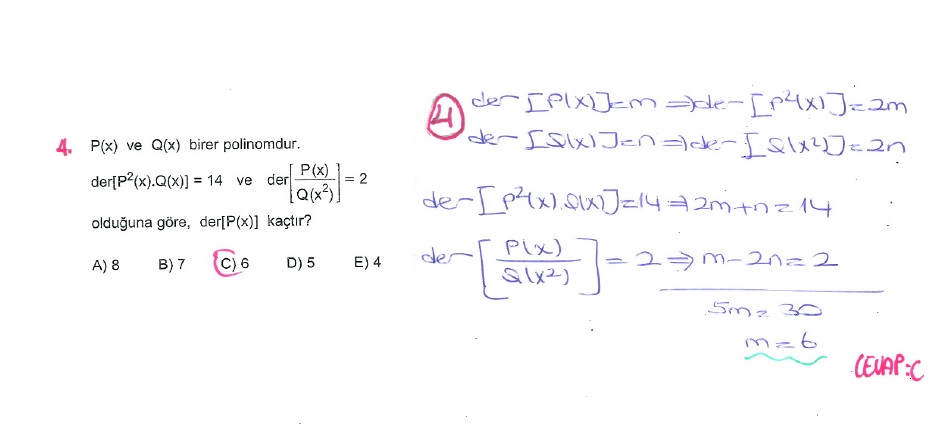 4. P(x) ve Q(x) birer polinomdur.
der[P²(x).Q(x)] = 14 ve der[P(x)/Q(x²)] = 2
olduğuna göre, der[P(x)] kaçtır?
A) 8 B) 7 C) 6 D) 5 E) 4
4 der[P(x)]=m ⇒ der[P²(x)]=2m
der[Q(x)]=n ⇒ der[Q(x²)]=2n
der[P²(x).Q(x)]=14 ⇒ 2m+n=14
der[P(x)/Q(x²)] = 2 ⇒ m-2n=2
5m=30
m=6
CEVAP:C